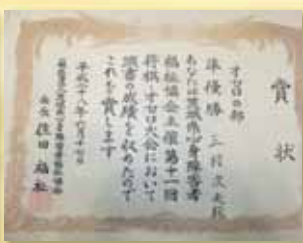 賞状
オセロの部
準優勝 三村次夫殿
あなたは茨城県心身障害者
福祉協会主催第十一回
将棋・オセロ大会において
頭書の成績を収めたので
これを賞します
平成二十八年
会長